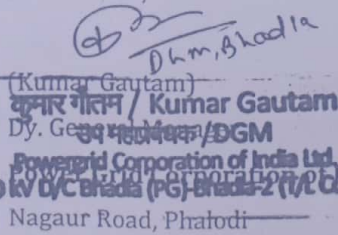 DGM, Bhadla
(Kumar Gautam)
कुमार गौतम / Kumar Gautam
Dy. General Manager
उप महाप्रबंधक /DGM
Powergrid Corporation of India Ltd.
kV D/C Bhadla (PG)-Bhadla-2 (T/L
Nagaur Road, Phalodi